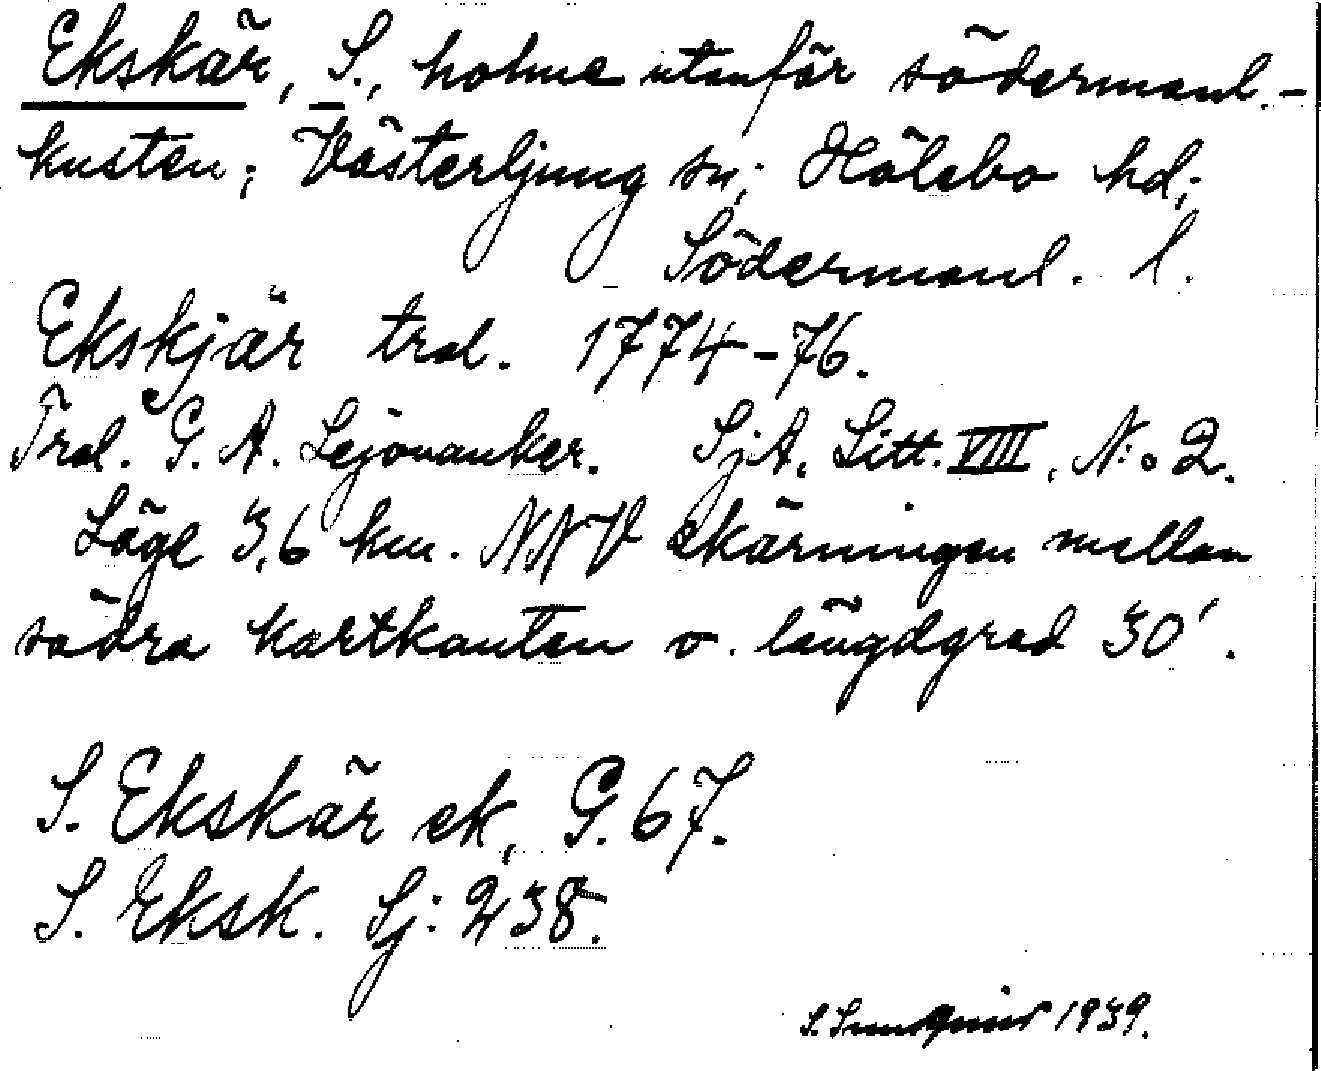 Ekskär, S., holme utanför södermanl.-
kusten; Västerljung sn; Hölebo hd;
Södermanl. l.
Ekskjär trol. 1774-76.
Trol. G. A. Lejonanker. SjA. Litt. VIII, N:o 2.
Läge 3,6 km. NNV skärningen mellan
södra kartkanten o. längdgrad 30'.
S. Ekskär ek, G. 67.
S. Eksk. Sj: 238.
S. 1939.